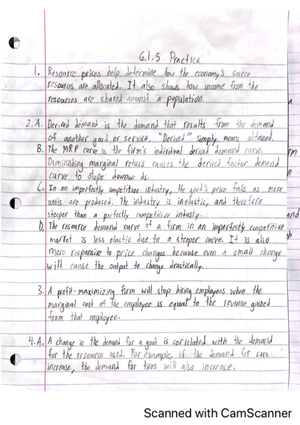 6.1.5 Practice
1. Resource prices help determine how the economy's scarce
resources are allocated. It also shows how income from the
resources are shared amongst a population.
2. A. Derived demand is the demand that results from the demand
of another good or service. "Derived" simply means obtained.
B. The MRP curve is the firm's individual derived demand curve.
Diminishing marginal returs causes the derived factor demand
curve to slope downwards.
C. In an imperfectly competitive industry, the good's price falls as more
units are produced. The industry is inelastic, and therefore
steeper than a perfectly competitive industry.
D. The resource demand curve of a firm in an imperfectly competitive
market is less elastic due to a steeper curve. It is also
more responsive to price changes because even a small change
will cause the output to change drastically.
3. A profit-maximizing firm will stop hiring employees when the
marginal cost of the employee is equal to the revenue gained
from that employee.
4. A. A change in the demand for a good is correlated with the demand
for the resource used. For example, if the demand for cars
increase, the demand for tires will also increase.
Scanned with CamScanner